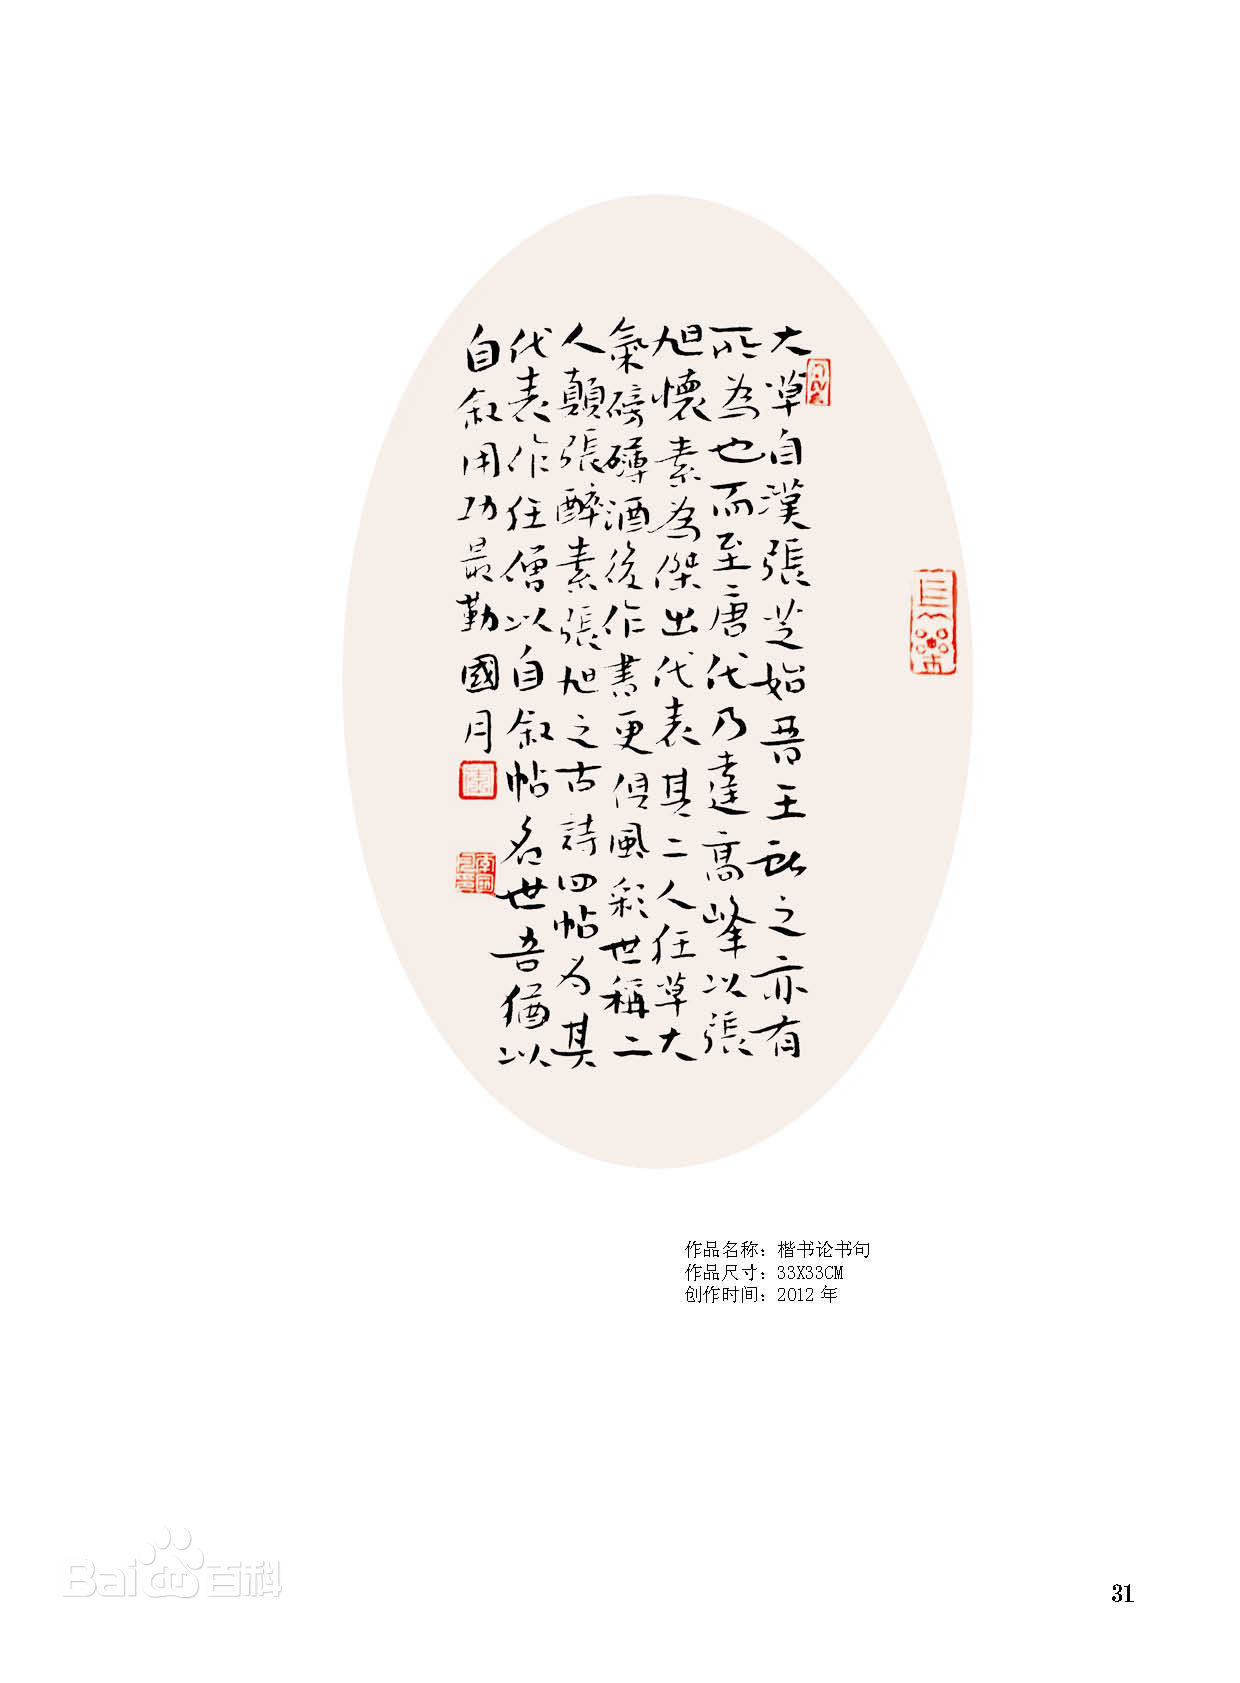 大草自漢張芝始晉王獻之亦有
所為也而至唐代乃達高峰以張
旭懷素為傑出代表其二人狂草大
氣磅礴酒後作書更俱風彩世稱二
人顛張醉素張旭之古詩四帖为其
代表作狂僧以自叙帖名世吾猶以
自叙用功最勤國月
作品名称：楷书论书句
作品尺寸：33X33CM
创作时间：2012 年
Bai 百科
31